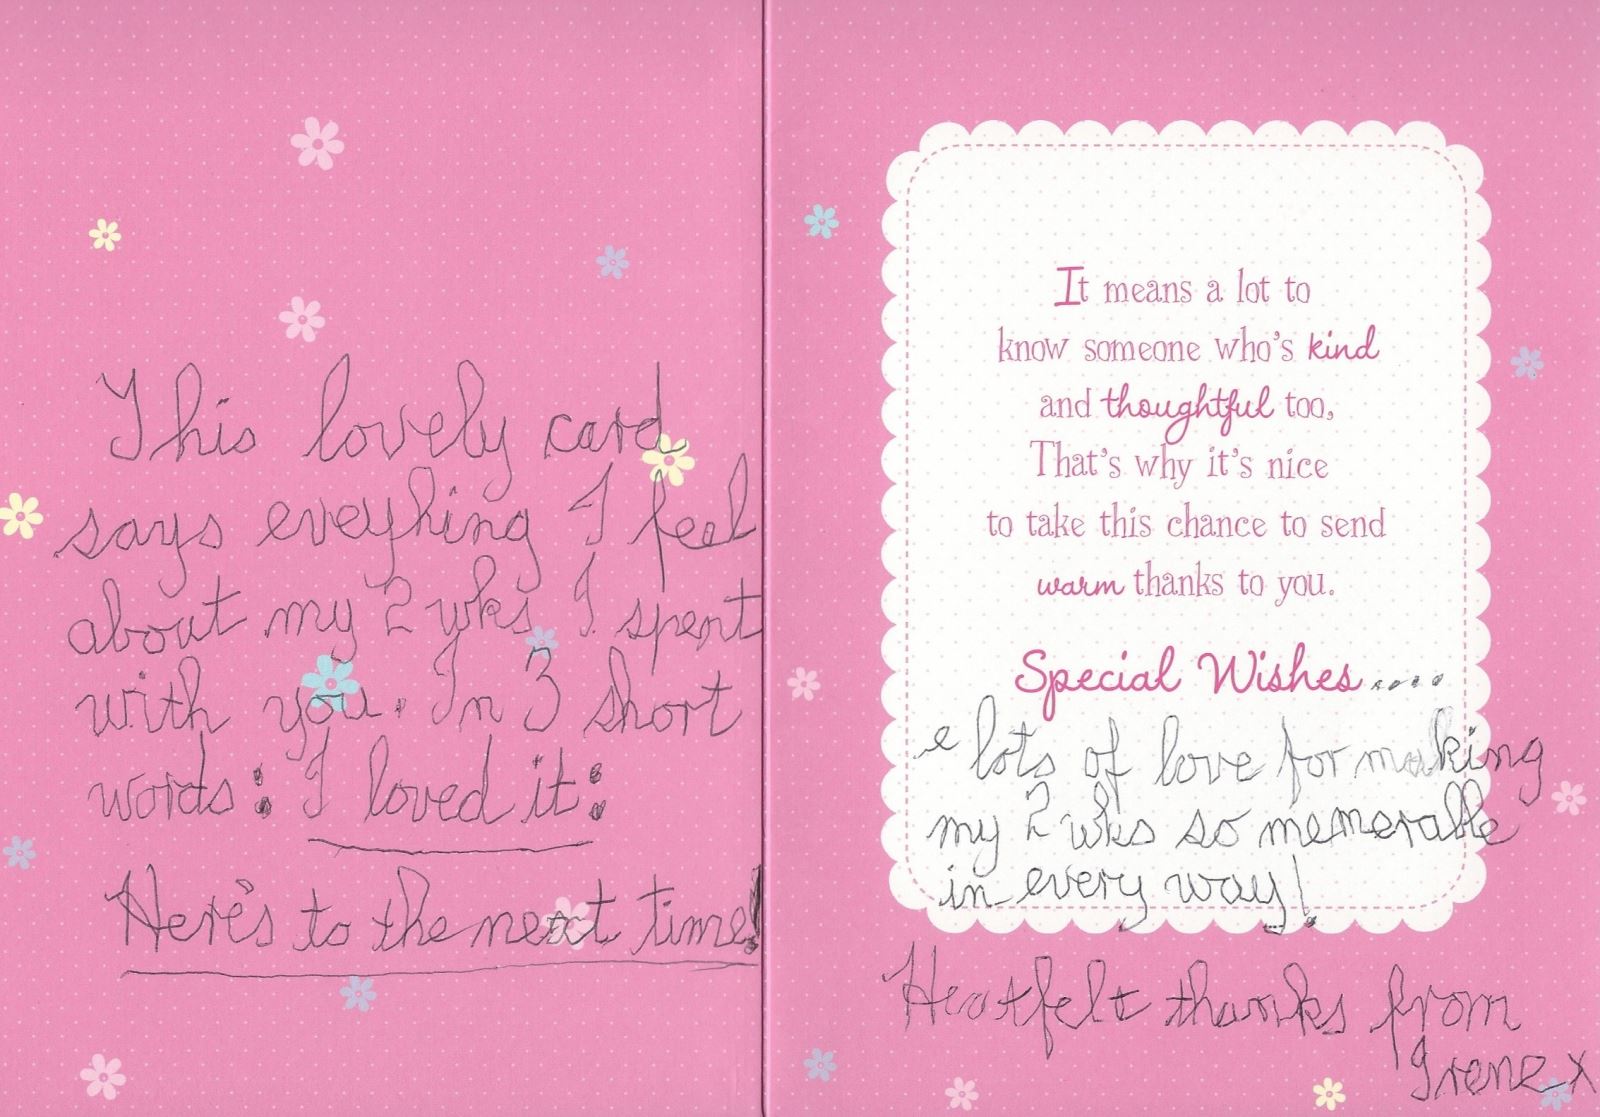 This lovely card
says eveyhing I feel
about my 2 wks I spent
with you. In 3 short
words: I loved it:
Here's to the next time!
It means a lot to
know someone who's kind
and thoughtful too,
That's why it's nice
to take this chance to send
warm thanks to you.
Special Wishes....
e lots of love for making
my 2 wks so memerable
in every way!
Heartfelt thanks from
Irene x